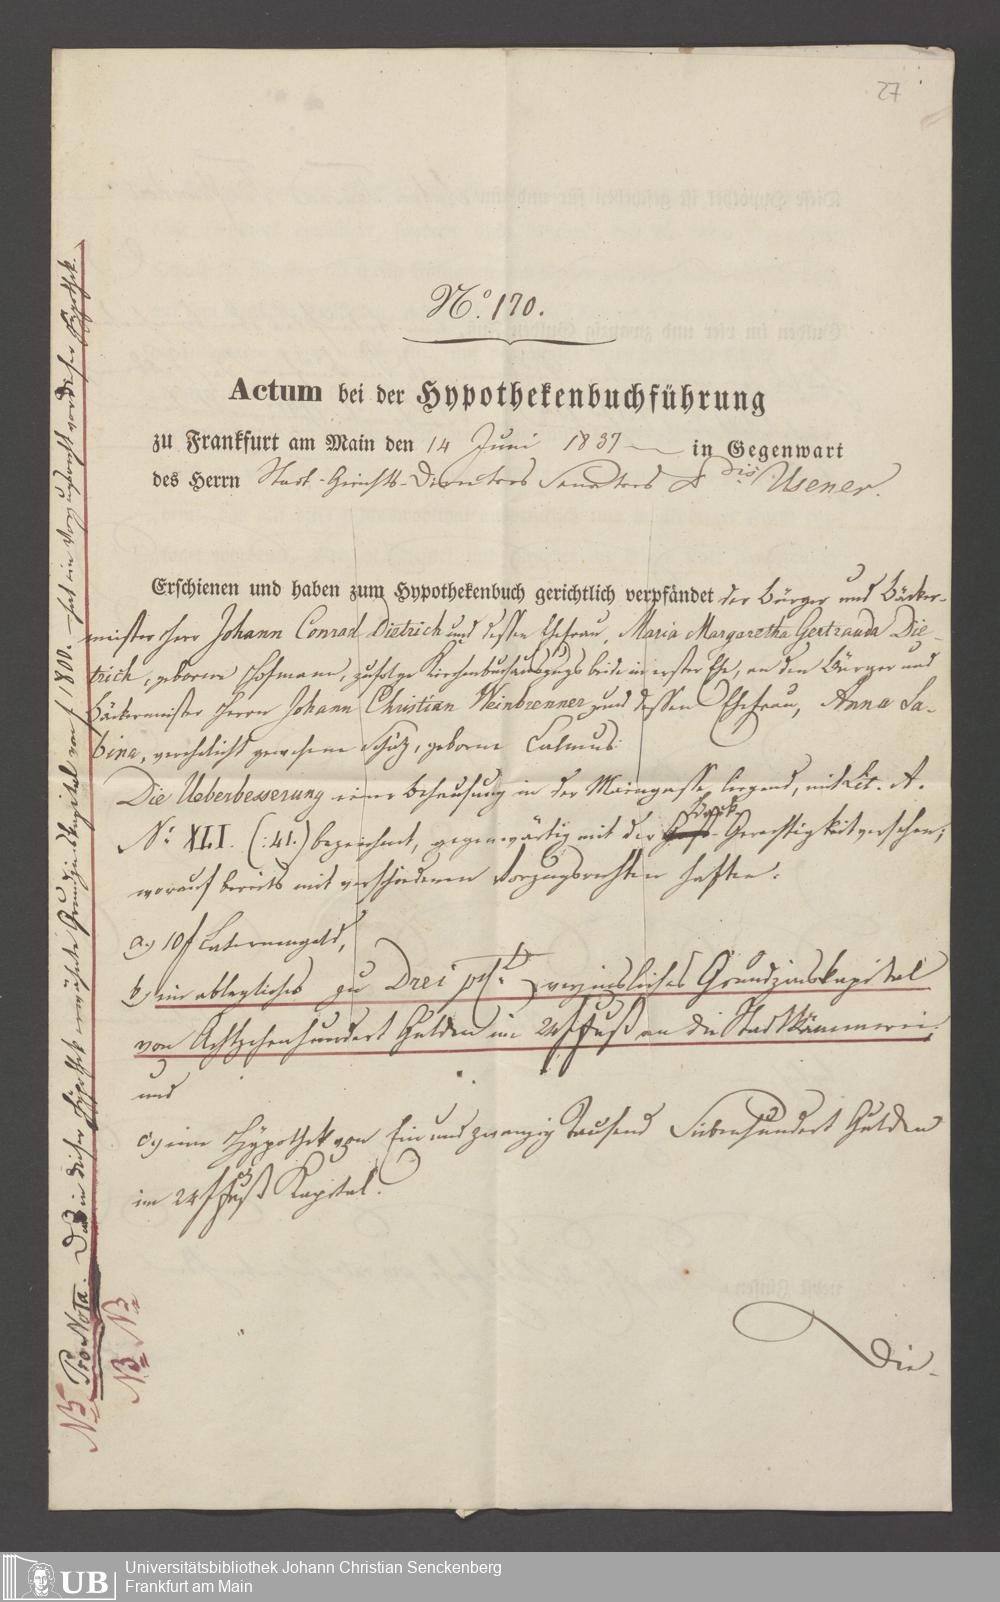 27
No. 170.
Actum bei der Hypothekenbuchführung
zu Frankfurt am Main den 14 Juni 1837 in Gegenwart
des Herrn Stadt-Gerichts-Directors Senators Dris Usener.
Erschienen und haben zum Hypothekenbuch gerichtlich verpfändet der Bürger und Bäcker-
meister Herr Johann Conrad Dietrich und dessen Ehefrau, Maria Margaretha Gertrauda Die-
trich, geborene Hofmann, zufolge Kirchenbuchauszugs beide in erster Ehe, an den Bürger und
Bäckermeister Herrn Johann Christian Weinbrenner und dessen Ehefrau, Anna Sa-
bina, verehelicht gewesene Schütz, geborne Calmus:
Die Ueberbesserung einer Behausung in der Maingasse liegend, mit Lit. A.
No. XLI. (:41.) bezeichnet, gegenwärtig mit der Back-Gerechtigkeit versehen;
worauf bereits mit verschiedenen Vorzugsrechten haften:
a.) 10 f Laternengeld,
b.) ein ablegliches zu Drei pCt. verzinsliches Grundzinskapital
von Achtzehenhundert Gulden im 24 f Fuß an die Stadtkämmerei,
und
c.) eine Hypothek von Ein und zwanzig Tausend Siebenhundert Gulden
im 24 f Fuß Kapital.
Die-
NB Pro Nota. Das in dieser Hypothek erwähnte Grundzinskapital von f 1800.— hat ein Vorzugsrecht vor dieser Hypothek.
NB NB
UB
Universitätsbibliothek Johann Christian Senckenberg
Frankfurt am Main